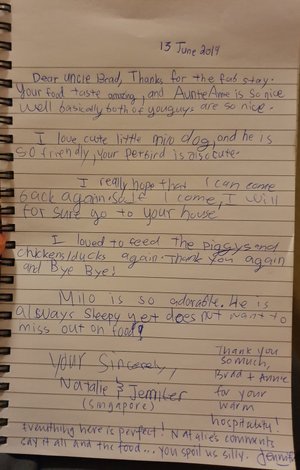 13 June 2019
Dear uncle Brad, Thanks for the fab stay.
Your food taste amazing, and Aunte Anne is so nice
well basically both of youguys are so nice.
I love cute little milo dog, and he is
so friendly, your petbird is also cute.
I really hope that I can come
back again. So if I come, I will
for sure go to your house
I loved to feed the piggys and
chickens/ducks again. Thank you again
and Bye Bye!
Milo is so adorable. He is
always sleepy yet does not want to
miss out on food!
Your Sincerely,
Natalie & Jennifer
(Singapore)
Thank you
so much,
Brad + Annie
for your
warm
hospitality!
Everything here is perfect! Natalie's comments
say it all and the food... you spoil us silly. Jennifer